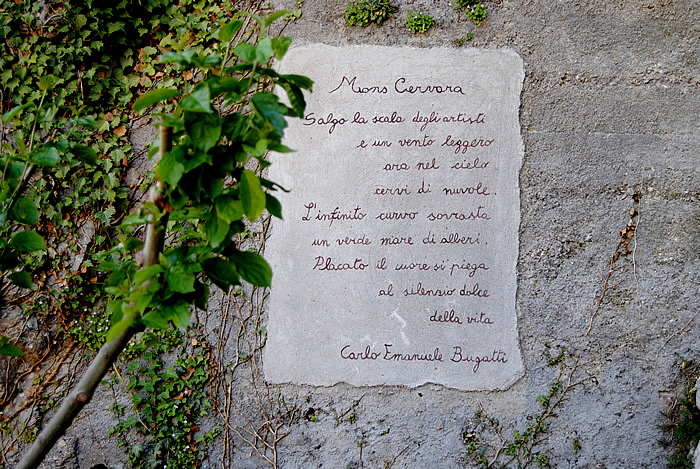 Mons Cervara
Salgo la scala degli artisti
e un vento leggero
ara nel cielo
cervi di nuvole.
L'infinito curvo sovrasta
un verde mare di alberi.
Placato il cuore si piega
al silenzio dolce
della vita
Carlo Emanuele Bugatti